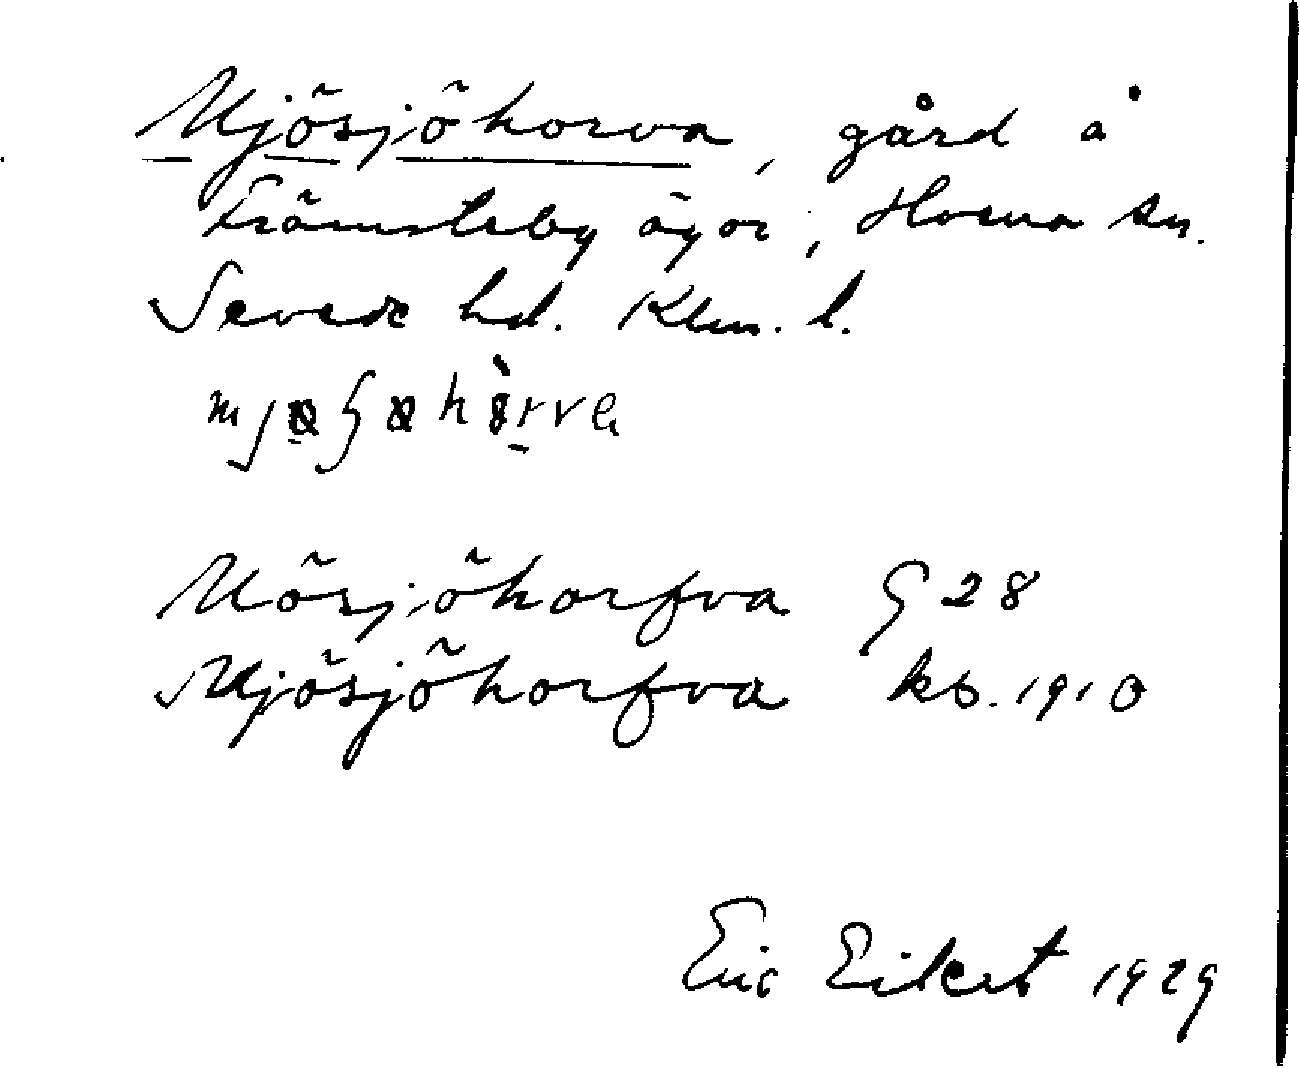 Mjösjöhorva, gård å
Främsteby ägor, Horna sn.
Sevede hd. Klm. l.
Mösjöhorfva G 28
Mjösjöhorfva kb. 1910
Eric Eikert 1929